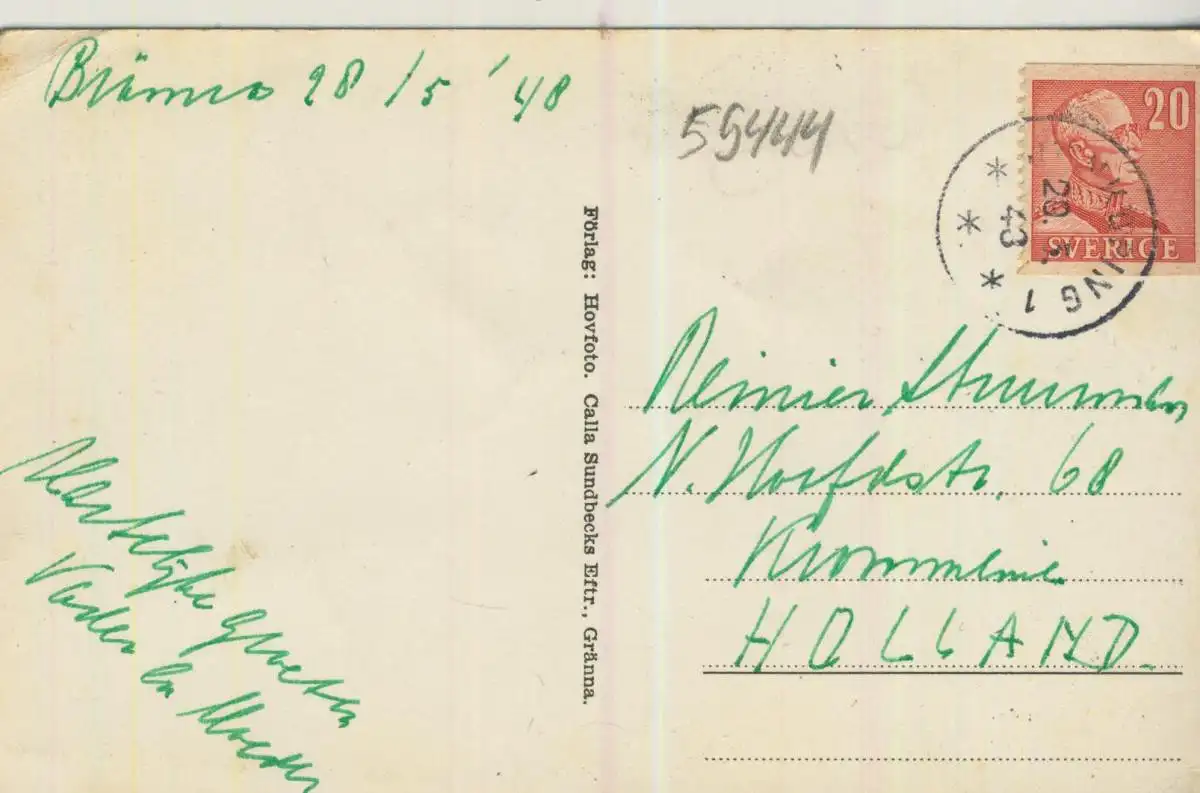 28/5 '48
55444
20
SVERIGE
29. 5. 43
ING 1
Förlag: Hovfoto. Calla Sundbecks Eftr., Gränna.
Reinier
N. Hoofdstr. 68
Krommenie
HOLLAND.
Hartelijke groeten
Vader en Moeder